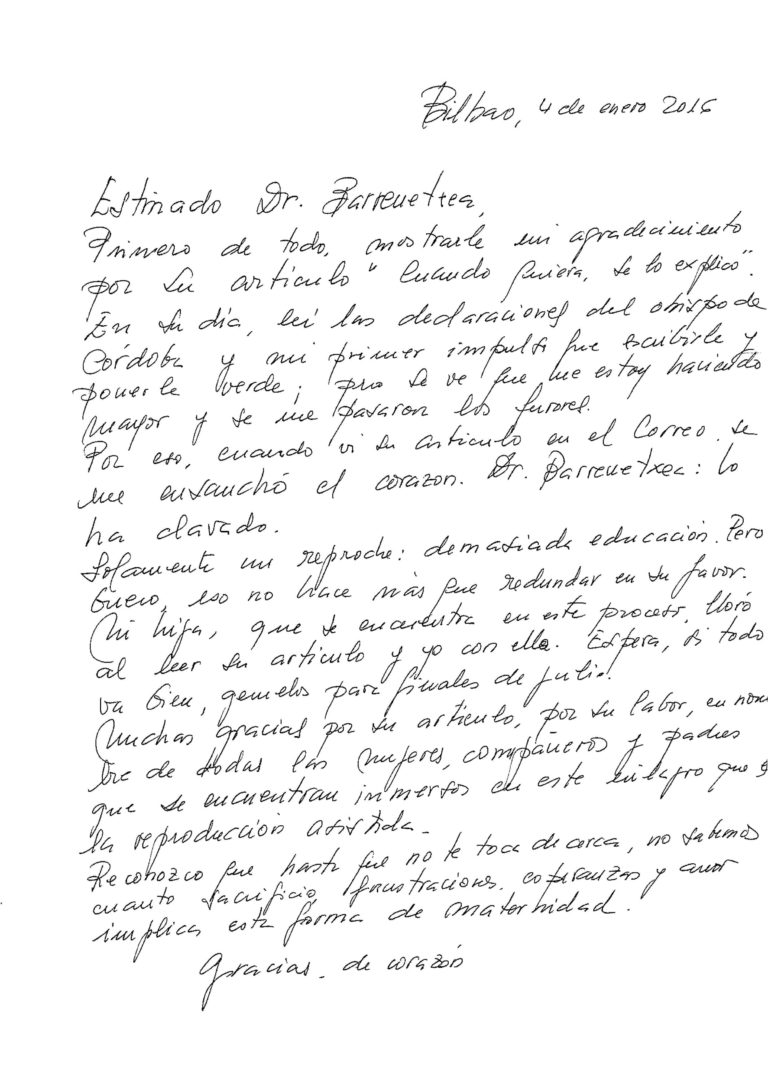 Bilbao, 4 de enero 2016
Estimado Dr. Barrenetxea,
Primero de todo, mostrarle mi agradecimiento
por su articulo "Cuando quiera, se lo explico".
En su día, leí las declaraciones del obispo de
Córdoba y mi primer impulso fue escribirle y
ponerle verde; pero se ve que me estoy haciendo
mayor y se me pasaron los furores.
Por eso, cuando vi su articulo en el Correo, se
me ensanchó el corazon. Dr. Barrenetxea: lo
ha clavado.
Solamente un reproche: demasiada educación. Pero
bueno, eso no hace más que redundar en su favor.
Mi hija, que se encuentra en este proceso, lloró
al leer su articulo y yo con ella. Espera, si todo
va bien, gemelos para finales de julio.
Muchas gracias por su articulo, por su labor, en nom
bre de todas las mujeres, compañeros y padres
que se encuentran inmersos en este milagro que es
la reproducción asistida.
Reconozco que hasta que no te toca de cerca, no sabemos
cuanto sacrificio, frustraciones, esperanzas y amor
implica esta forma de maternidad.
Gracias, de corazón